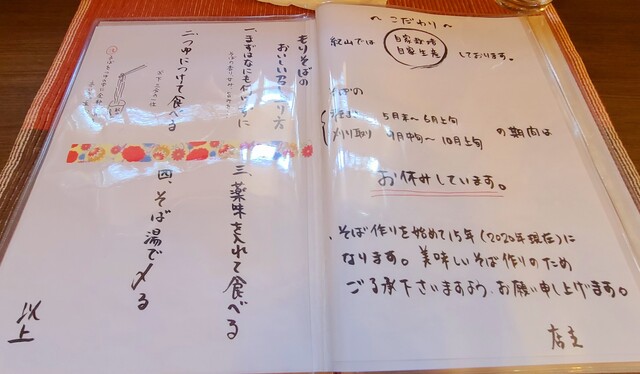 もりそばの
おいしい召上り方
一、まずはなにも付けずに
二、つゆにつけて食べる
三、薬味を入れて食べる
四、そば湯で〆る
以上
～こだわり～
紀山では
自家栽培
自家生産
しております。
そばの
5月末～6月上旬
刈り取り 9月中旬～10月上旬
の期間は
お休みしています。
そば作りを始めて15年（2020年現在）に
なります。美味しいそば作りのため
ご了承下さいますよう、お願い申し上げます。
店主